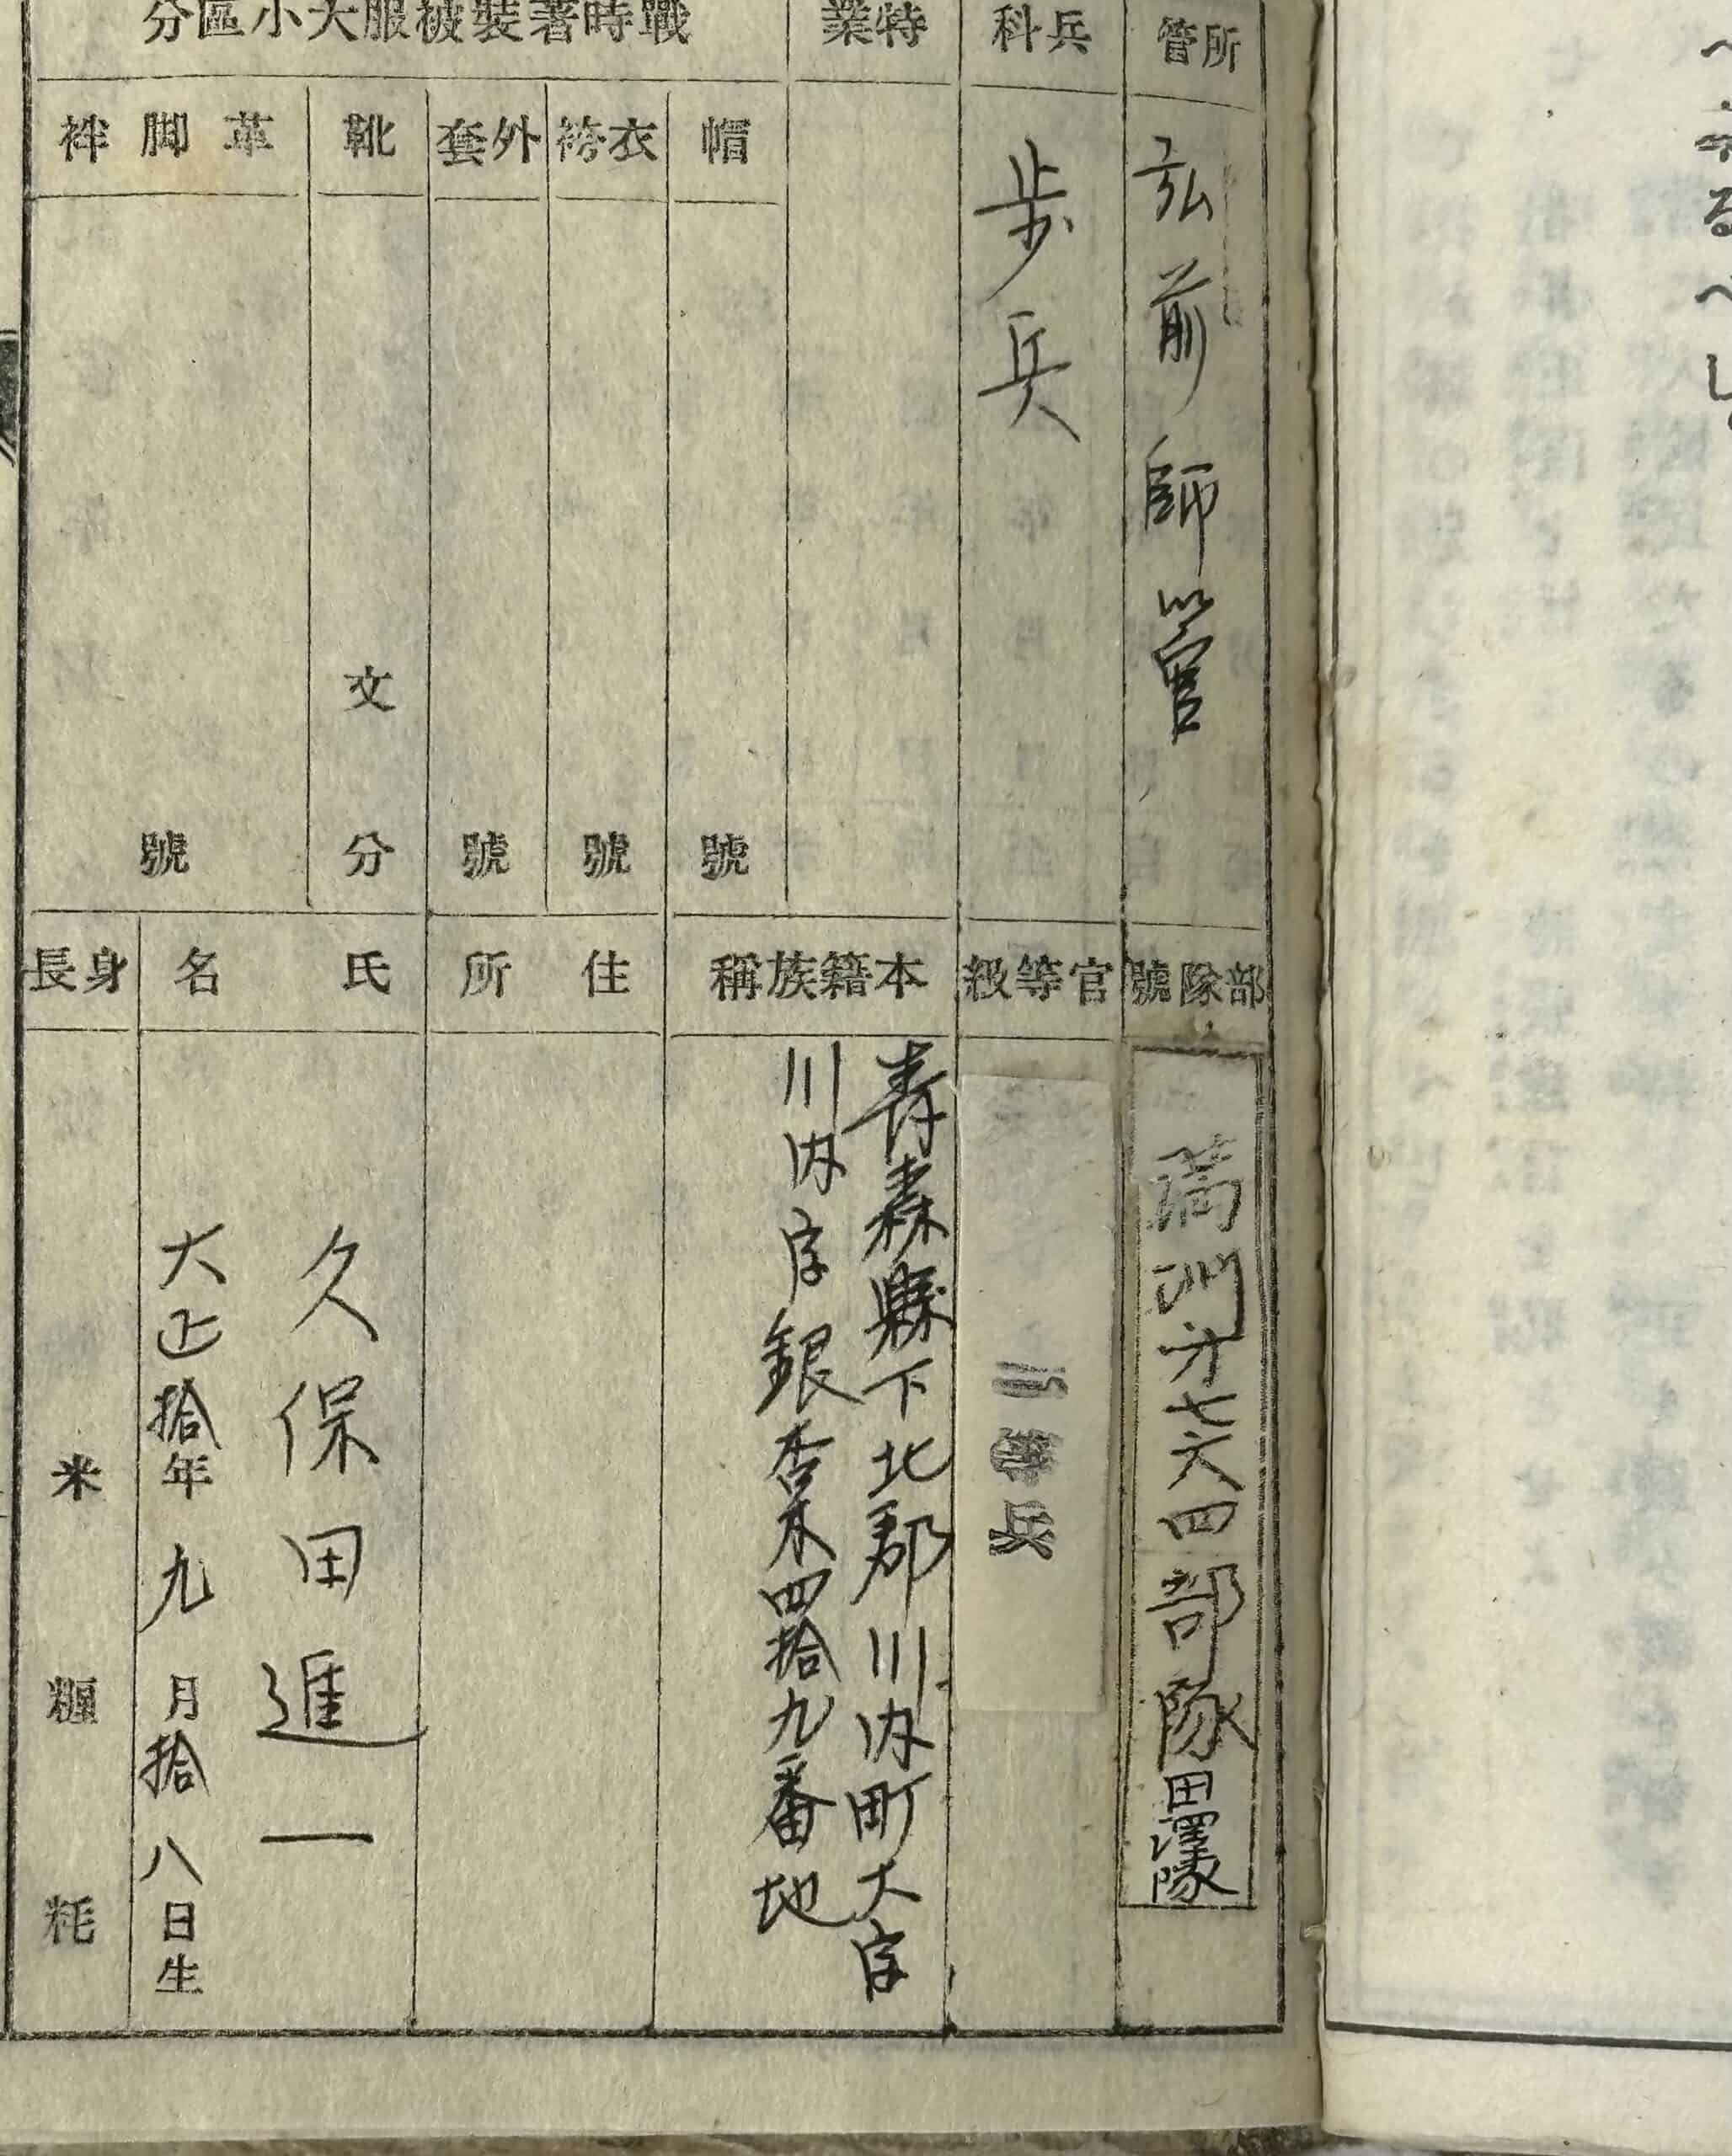 所管
弘前師管
兵科
歩兵
特業
戰時著裝被服大小區分
帽
號
衣袴
號
外套
號
靴
文
分
革脚絆
號
部隊號
満洲才七六四部隊田澤隊
官等級
二等兵
本籍族稱
青森縣下北郡川内町大字
川内字銀杏木四拾九番地
住所
氏名
久保田進一
大正拾年九月拾八日生
身長
米
糎
粍
るべし